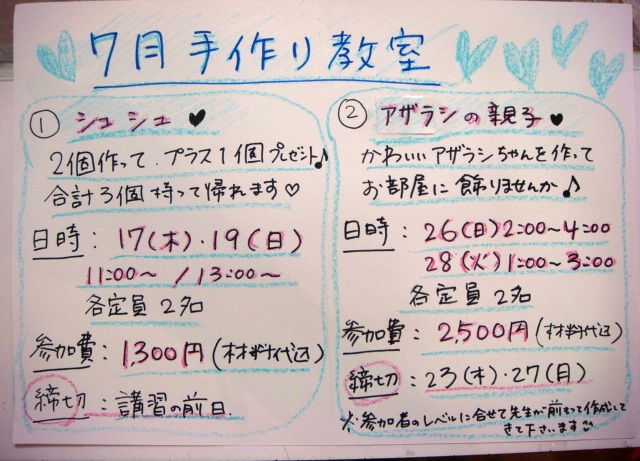 7月手作り教室
① シュシュ ♥
2個作って.プラス1個プレゼント♪
合計3個持って帰れます♡
日時: 17(木)・19(日)
11:00〜 / 13:00〜
各定員 2名
参加費: 1,300円(材料代込)
締切: 講習の前日.
② アザラシの親子 ♥
かわいいアザラシちゃんを作って
お部屋に飾りませんか♪
日時: 26(日) 2:00〜4:00
28(火) 1:00〜3:00
各定員 2名
参加費: 2,500円(材料代込)
締切: 23(木)・27(月)
※参加者のレベルに合せて先生が前もって作成して
きて下さいます